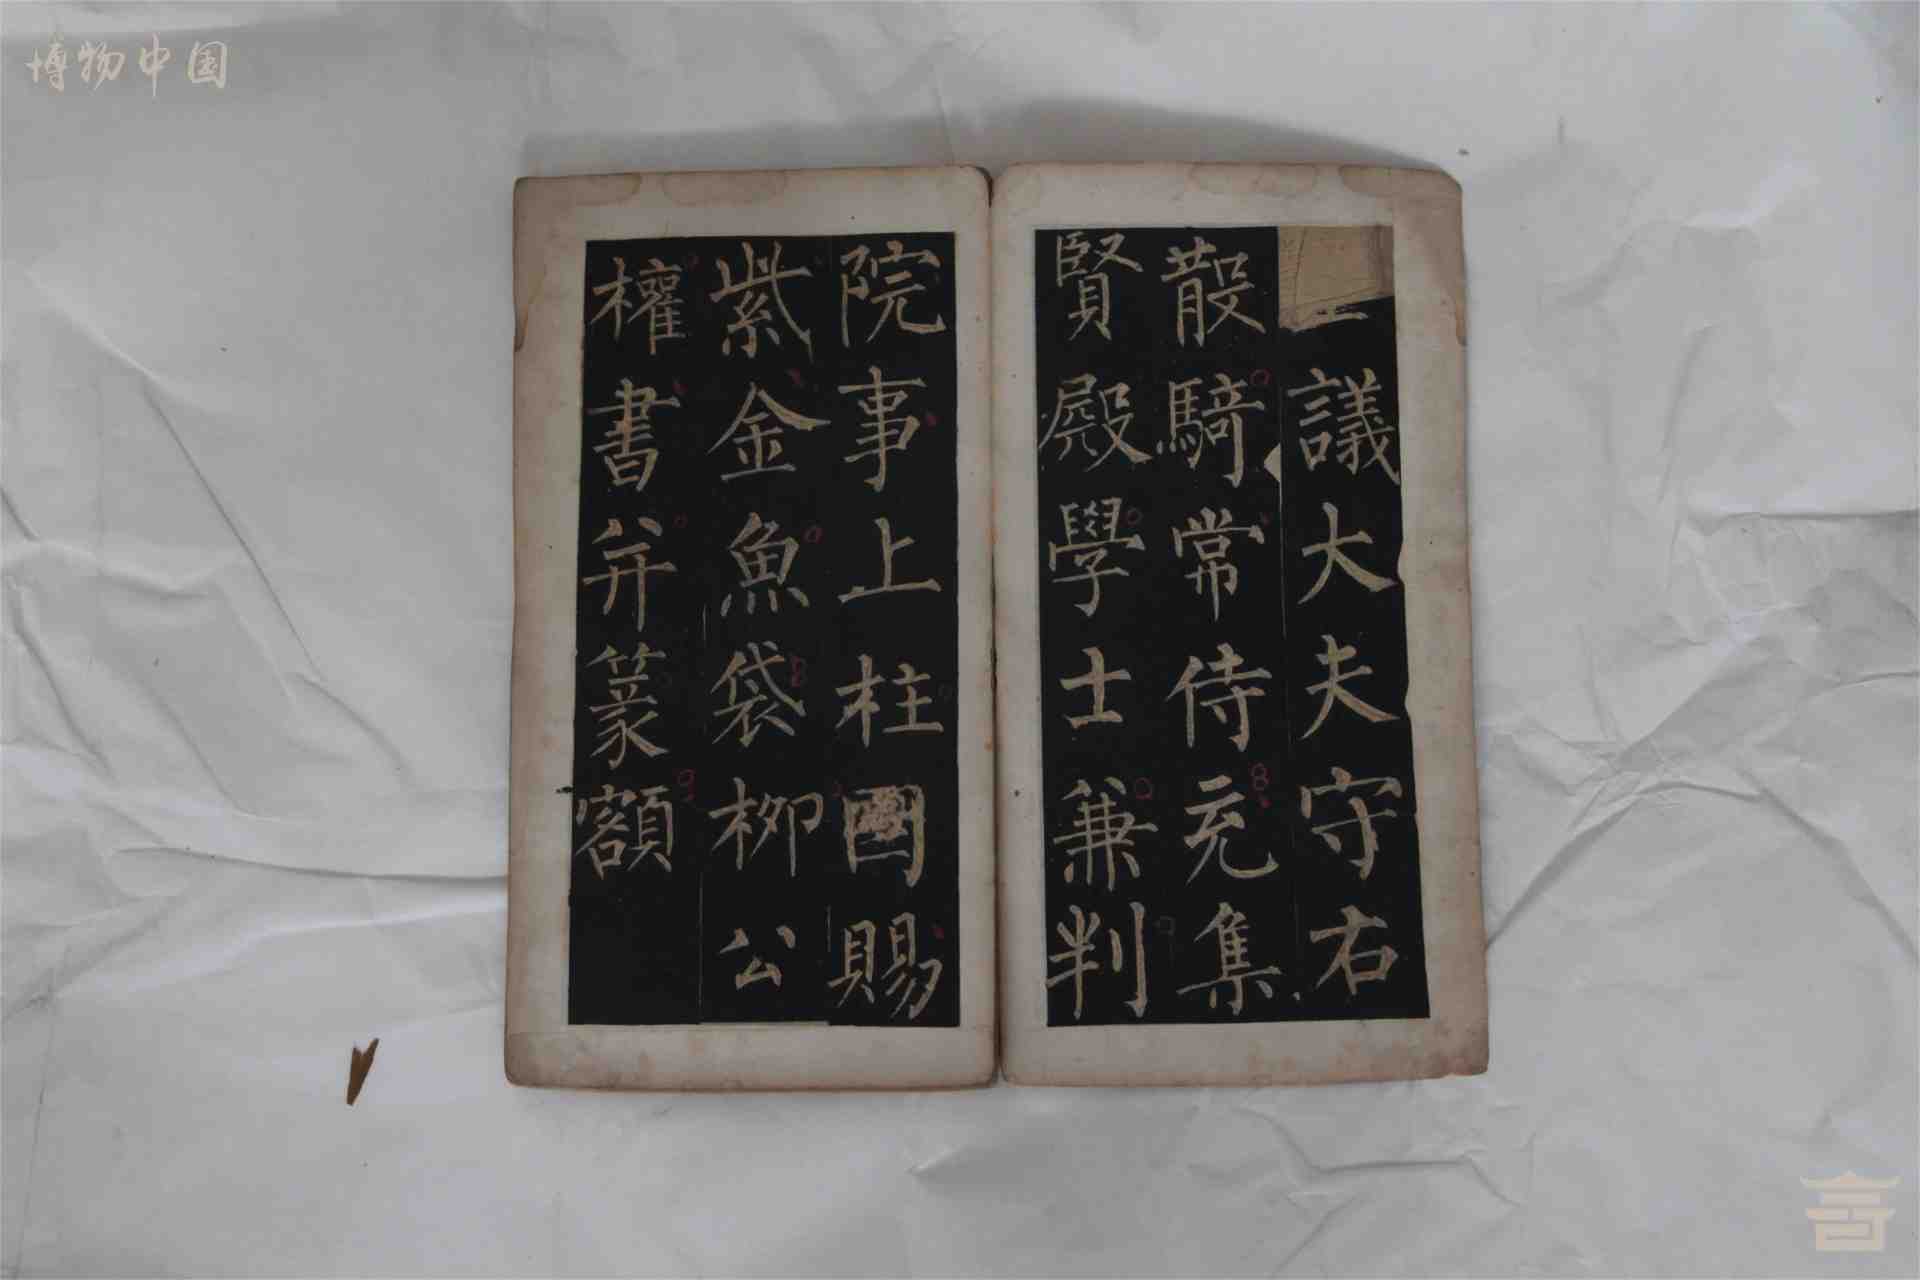 博物中国
議大夫守右
散騎常侍充集
賢殿學士兼判
院事上柱國賜
紫金魚袋柳公
權書并篆額